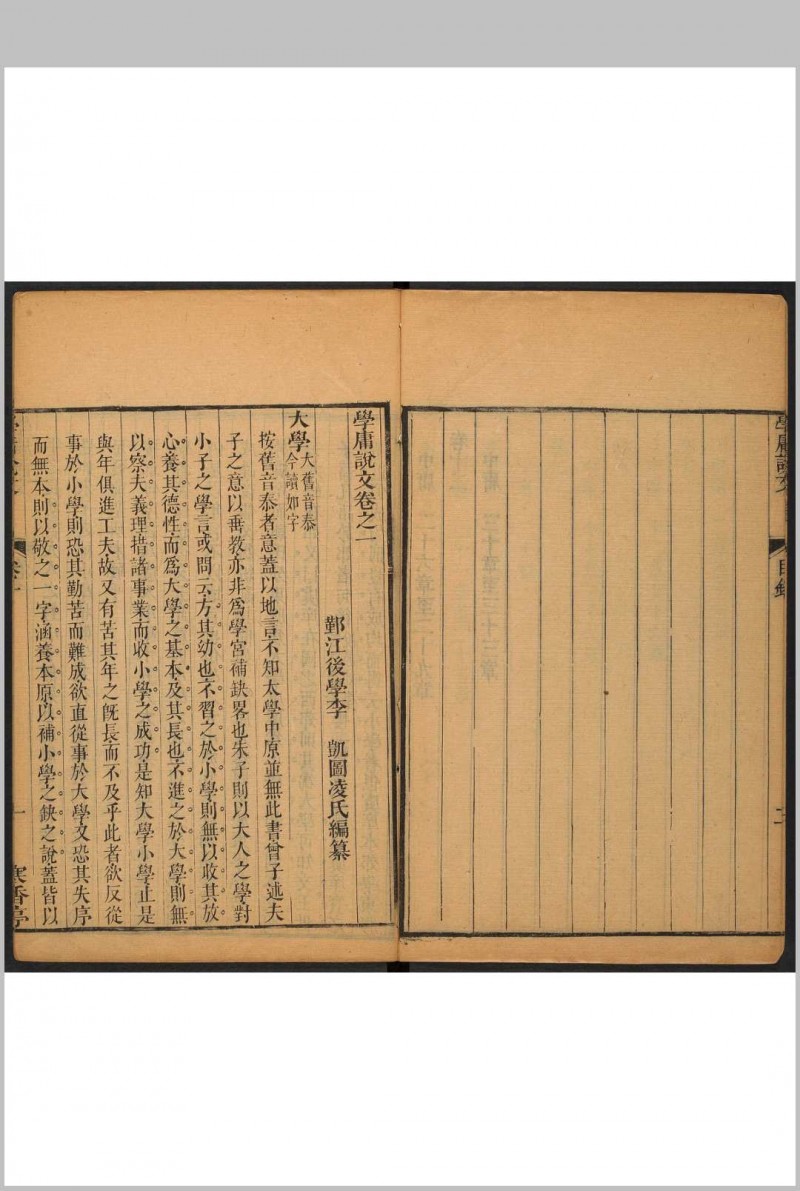 學庸說文
目錄
二
學庸說文卷之一
鄞江後學李 凱圖凌氏編纂
大學大舊音泰今讀如字
按舊音泰者意蓋以地言不知太學中原並無此書曾子述夫
子之意以垂教亦非爲學宮補缺畧也朱子則以大人之學對
小子之學言或問云方其幼也不習之於小學則無以收其放
心養其德性而爲大學之基本及其長也不進之於大學則無
以察夫義理措諸事業而收小學之成功是知大學小學止是
與年俱進工夫故又有苦其年之旣長而不及乎此者欲反從
事於小學則恐其勤苦而難成欲直從事於大學又恐其失序
而無本則以敬之一字涵養本原以補小學之缺之說蓋皆以
卷一
一
寒香亭